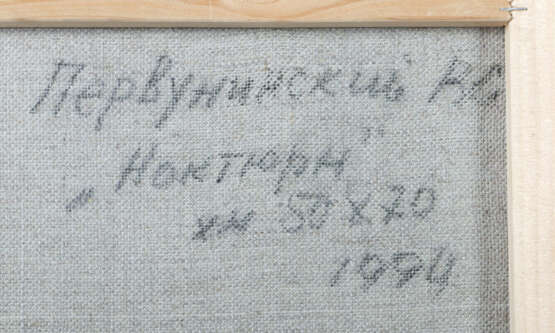 Первунинский В.С.
„Ноктюрн"
хм 50х70
1994